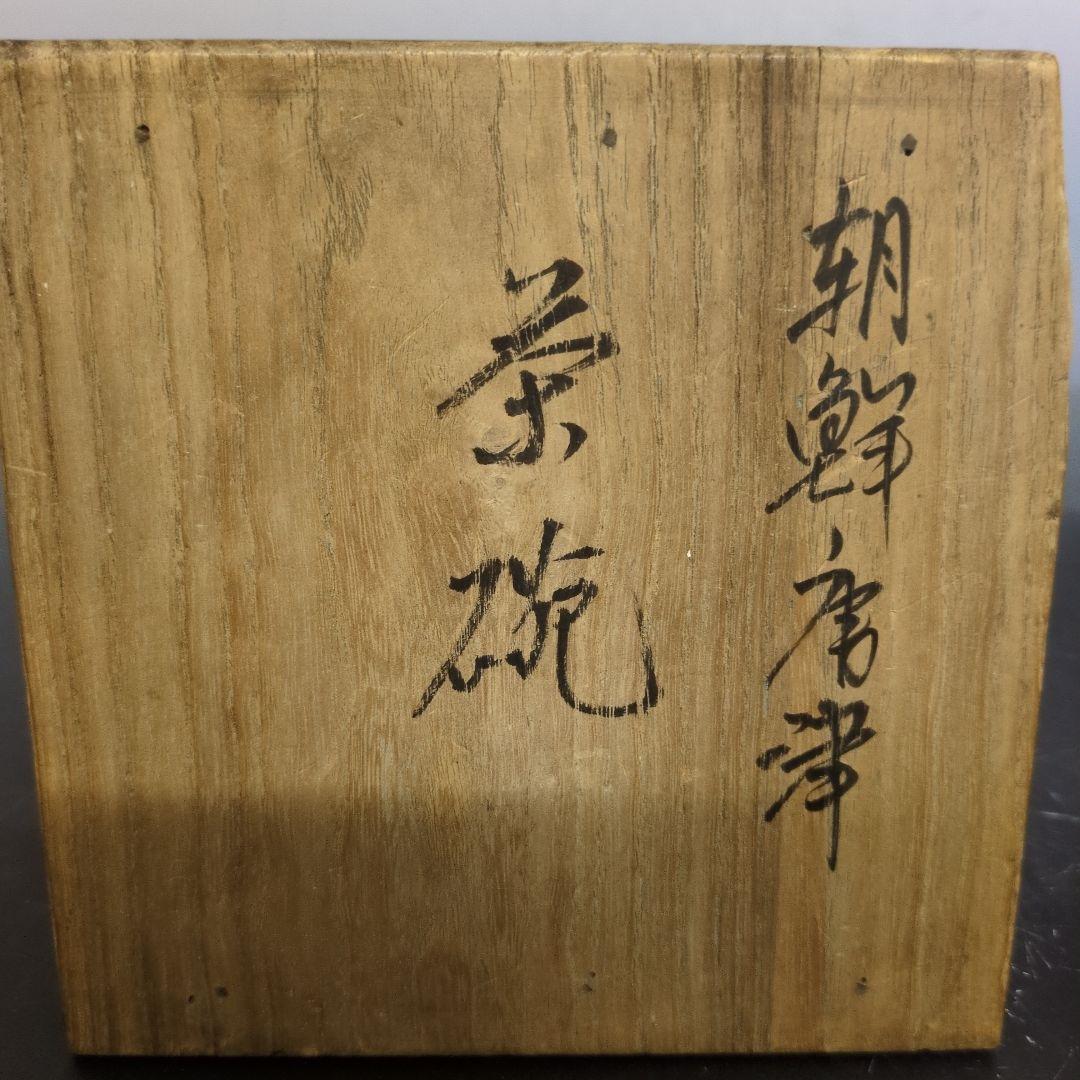 朝鮮唐津
茶碗